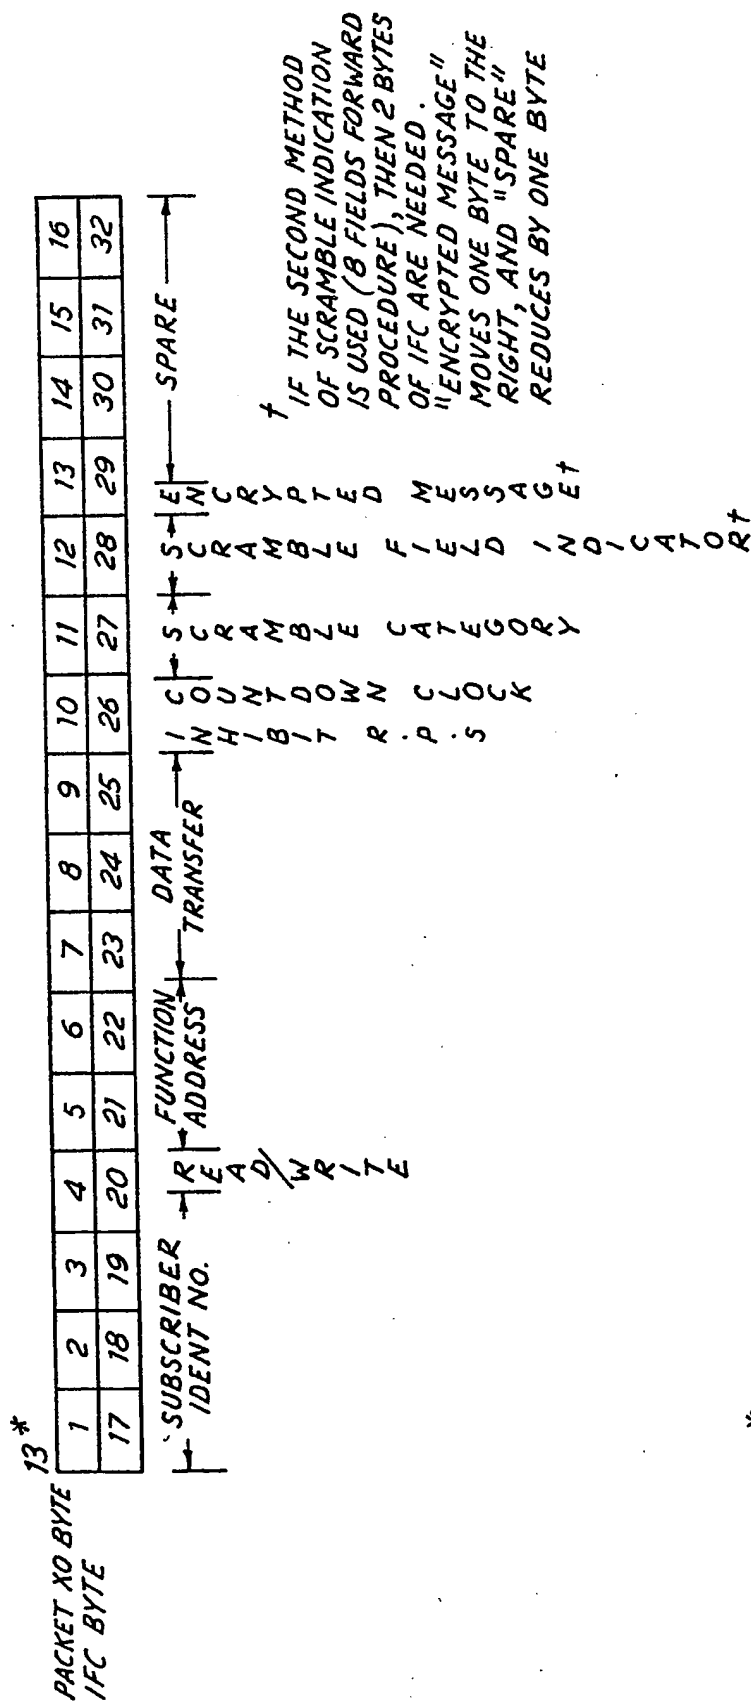 13*
PACKET X0 BYTE 1 2 3 4 5 6 7 8 9 10 11 12 13 14 15 16
IFC BYTE 17 18 19 20 21 22 23 24 25 26 27 28 29 30 31 32
SUBSCRIBER
IDENT NO.
READ/WRITE
FUNCTION
ADDRESS
DATA
TRANSFER
INHIBIT R.P.S
COUNTDOWN CLOCK
SCRAMBLE CATEGORY
SCRAMBLE FIELD INDICATOR†
ENCRYPTED MESSAGE†
SPARE
† IF THE SECOND METHOD
OF SCRAMBLE INDICATION
IS USED (8 FIELDS FORWARD
PROCEDURE), THEN 2 BYTES
OF IFC ARE NEEDED.
"ENCRYPTED MESSAGE"
MOVES ONE BYTE TO THE
RIGHT, AND "SPARE"
REDUCES BY ONE BYTE